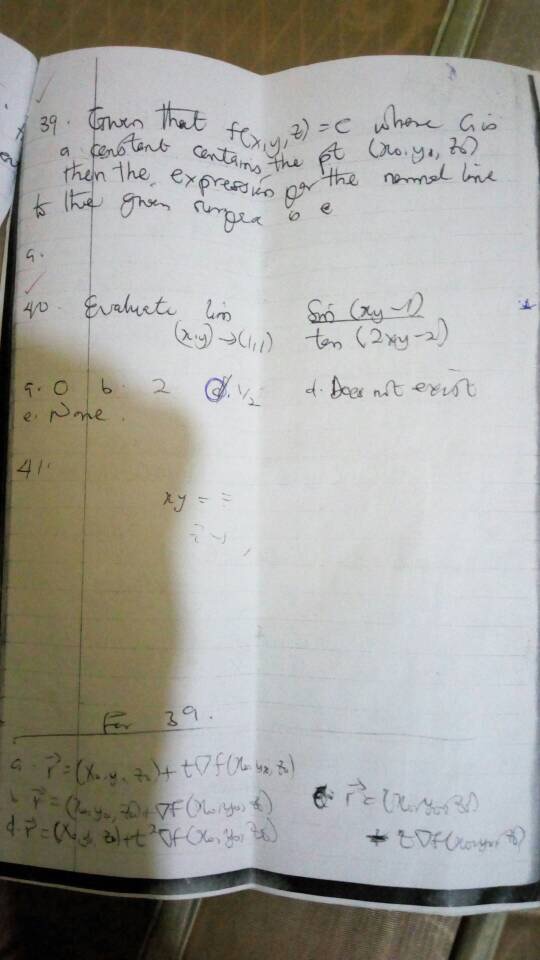 39. Given that f(x,y,z) = c where c is
a constant contains the pt (x₀,y₀,z₀)
then the expression for the normal line
to the given is
a.
40. Evaluate lim (x,y)→(1,1) sin(xy-1) / tan(2xy-2)
a. 0 b. 2 c. 1/2 d. Does not exist
e. None.
41.
xy =
For 39.
a. r⃗ = (x₀,y₀,z₀) + t∇f(x₀,y₀,z₀)
b. r⃗ = (x₀,y₀,z₀) + ∇f(x₀,y₀,z₀)
d. r⃗ = (x₀,y₀,z₀) + t²∇f(x₀,y₀,z₀)
r⃗ = (x₀,y₀,z₀)
t∇f(x₀,y₀,z₀)